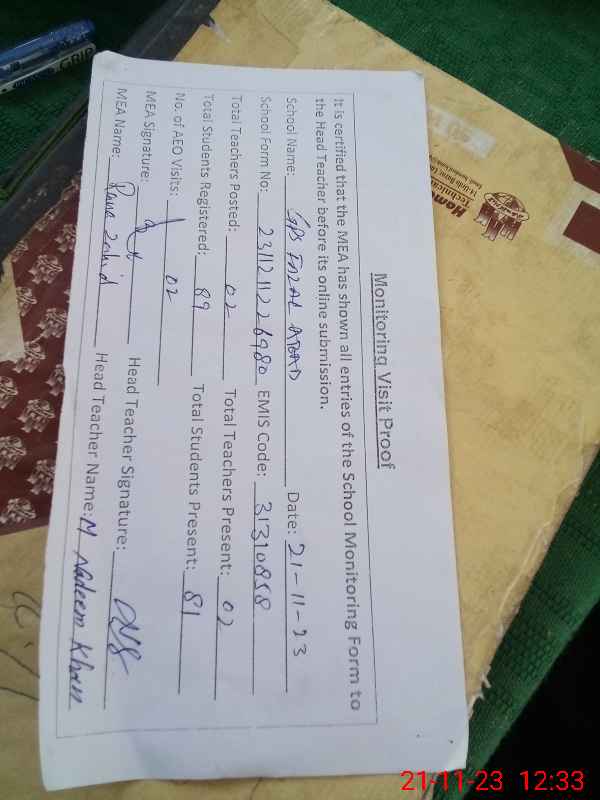 Monitoring Visit Proof
It is certified that the MEA has shown all entries of the School Monitoring Form to
the Head Teacher before its online submission.
School Name: GPS FAZAL ABAD Date: 21-11-23
School Form No: EMIS Code: 31310858
Total Teachers Posted: 02 Total Teachers Present: 02
Total Students Registered: 89 Total Students Present: 81
No. of AEO Visits: 02
MEA Signature: Head Teacher Signature:
MEA Name: Rana Zahid Head Teacher Name: M Nadeem Khan
GRIP
21-11-23 12:33